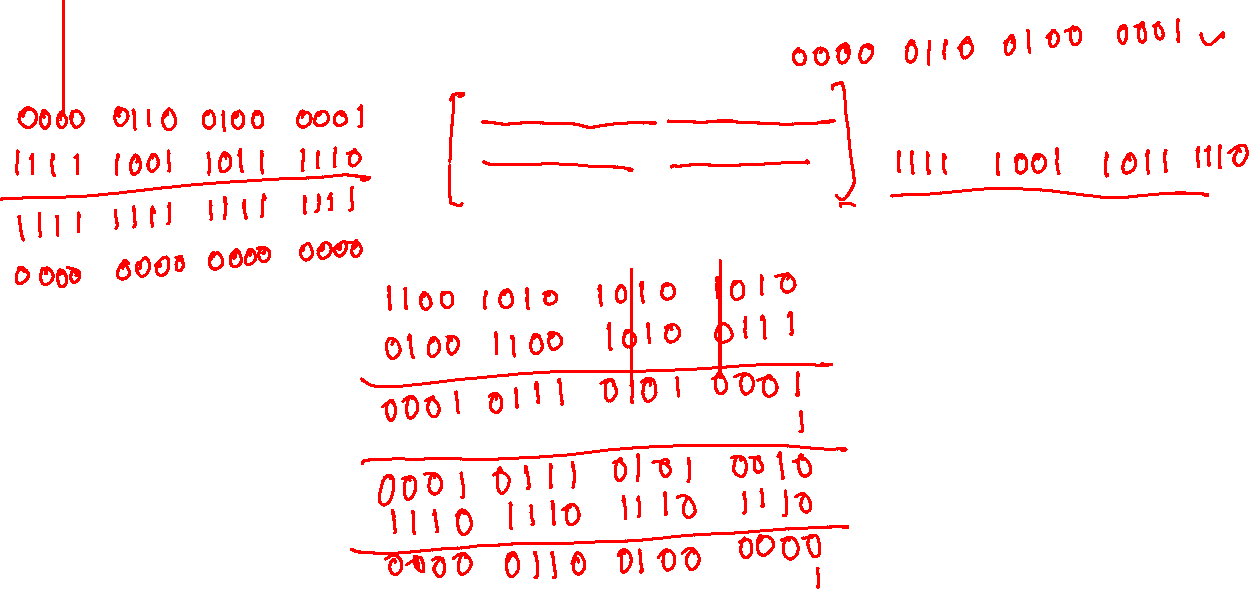 0000 0110 0100 0001 ✓
0000 0110 0100 0001
1111 1001 1011 1110
1111 1111 1111 1111
0000 0000 0000 0000
1111 1001 1011 1110
1100 1010 1010 1010
0100 1100 1010 0111
0001 0111 0101 0001
1
0001 0111 0101 0010
1110 1110 1110 1110
0000 0110 0100 0000
1